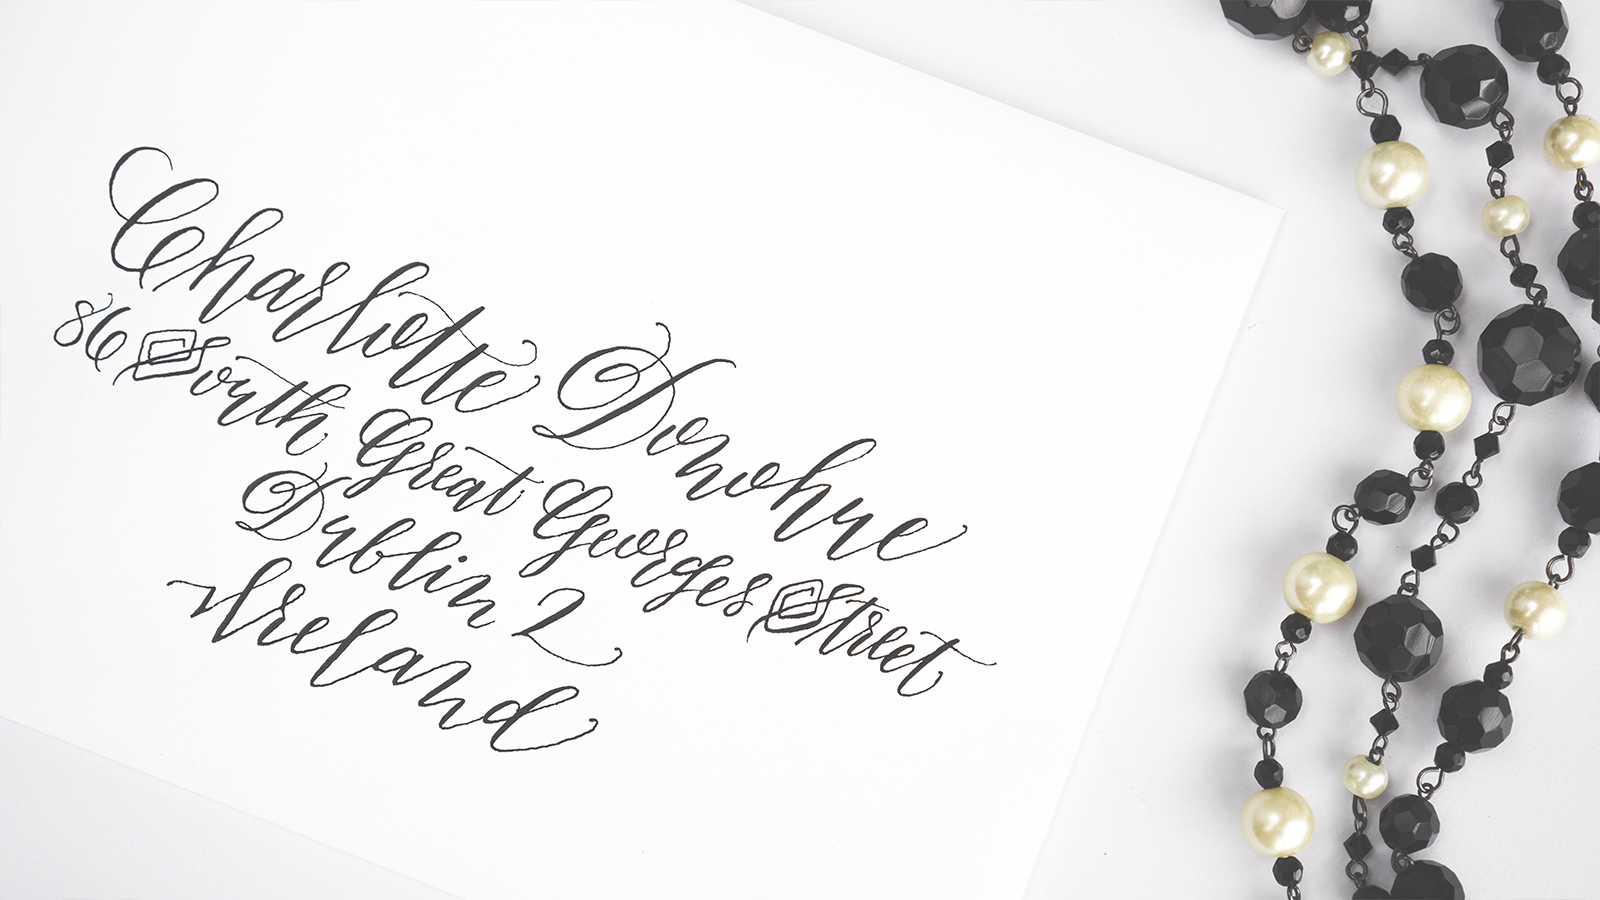 Charlotte Donohue
86 South Great Georges Street
Dublin 2
Ireland